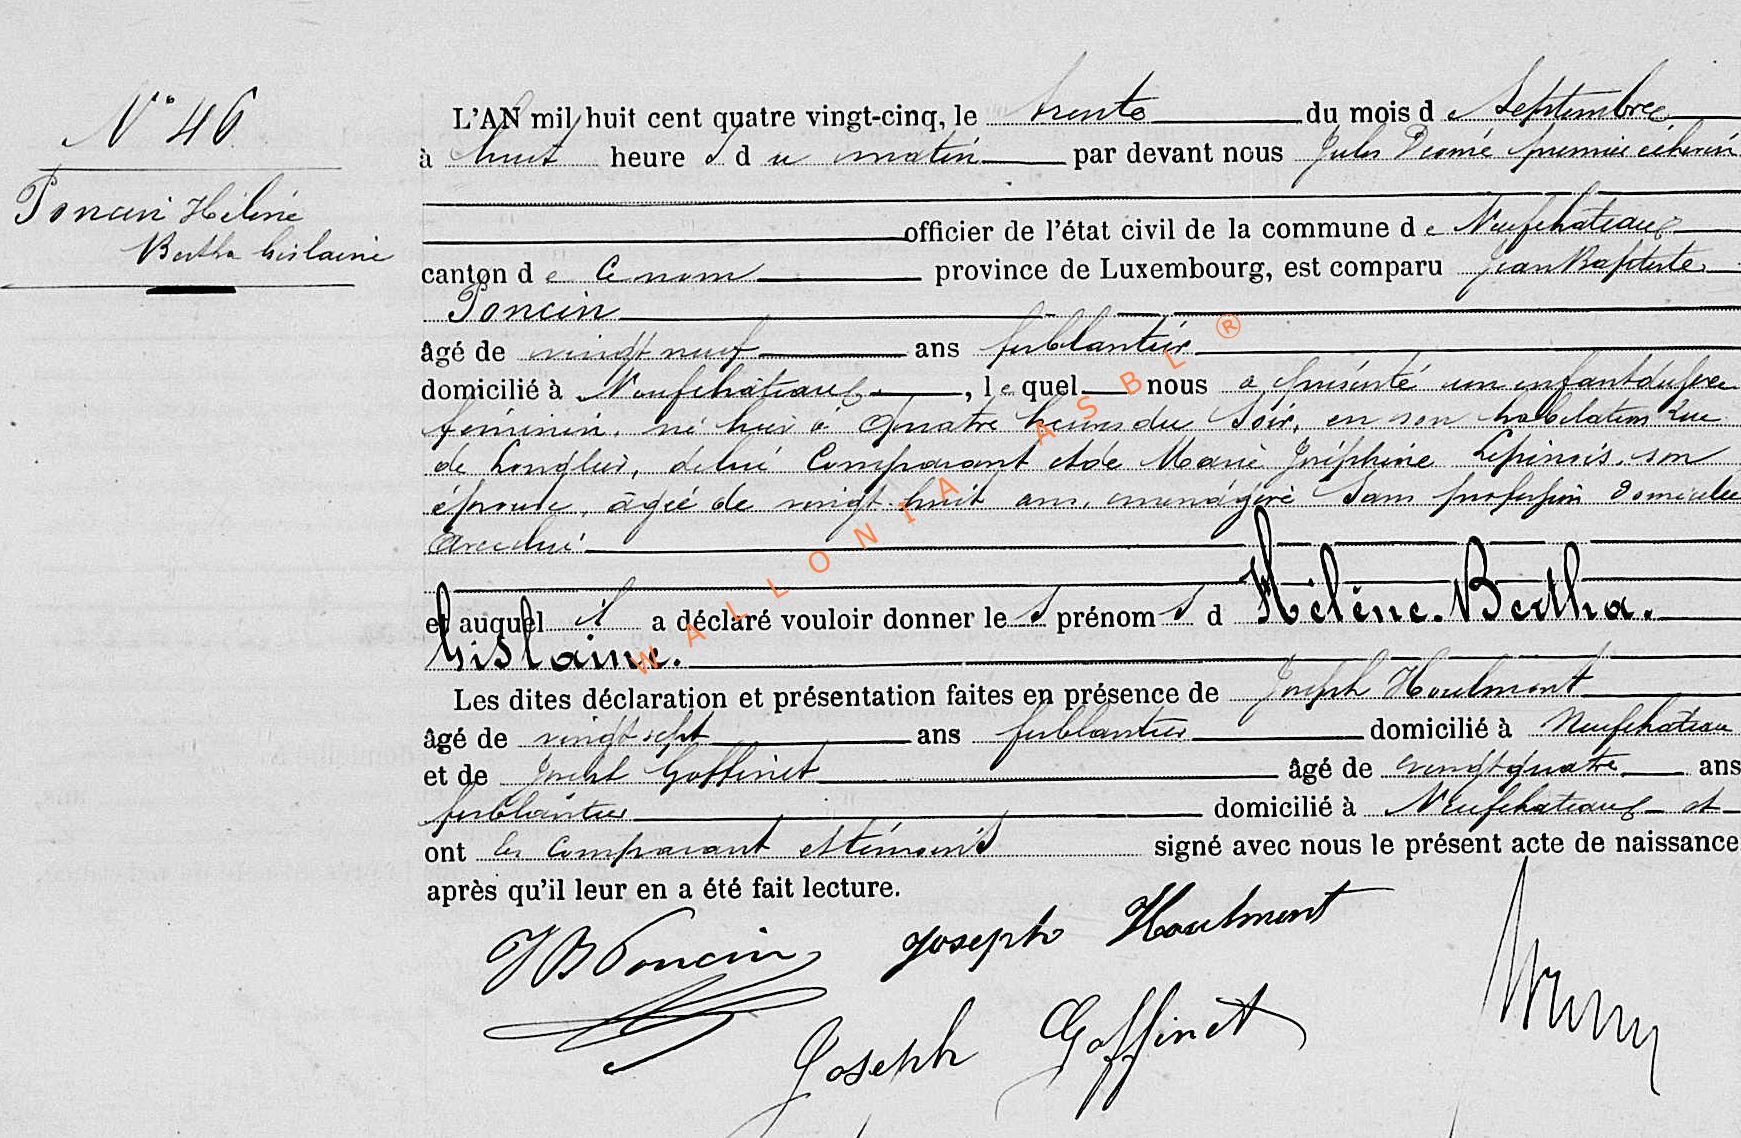 N° 46
Poncin Hélène
Bertha Gislaine
L'AN mil huit cent quatre vingt-cinq, le trente du mois de Septembre
à huit heures du matin par devant nous Jules premier échevin
officier de l'état civil de la commune de Neufchateau
canton de ce nom province de Luxembourg, est comparu Jean Baptiste
Poncin
âgé de vingt neuf ans ferblantier
domicilié à Neufchateau, lequel nous a présenté un enfant du sexe
féminin, né hier à quatre heures du soir, en son habitation Rue
de Longlier, de lui comparant et de Marie Joséphine Lepinois, son
épouse, agée de vingt-huit ans, ménagère sans profession domiciliée
avec lui
et auquel il a déclaré vouloir donner les prénoms d Hélène. Bertha.
Gislaine.
Les dites déclaration et présentation faites en présence de Joseph Houlmont
âgé de vingt sept ans ferblantier domicilié à Neufchateau
et de Joseph Goffinet âgé de vingt quatre ans
ferblantier domicilié à Neufchateau et
ont les comparant et témoins signé avec nous le présent acte de naissance
après qu'il leur en a été fait lecture.
JB Poncin Joseph Houlmont
Joseph Goffinet
WALLONIA ASBL ®